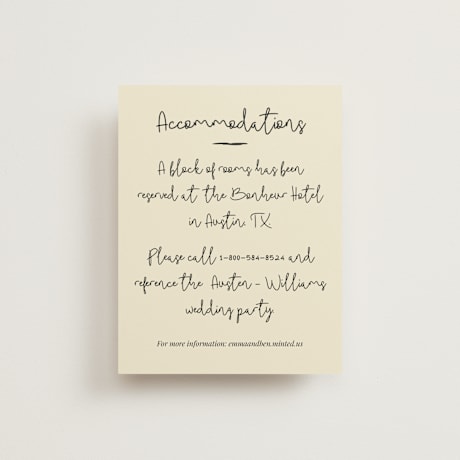 Accommodations
A block of rooms has been
reserved at the Bonheur Hotel
in Austin, TX
Please call 1-800-584-8524 and
reference the Austen - Williams
wedding party.
For more information: emmaandben.minted.us